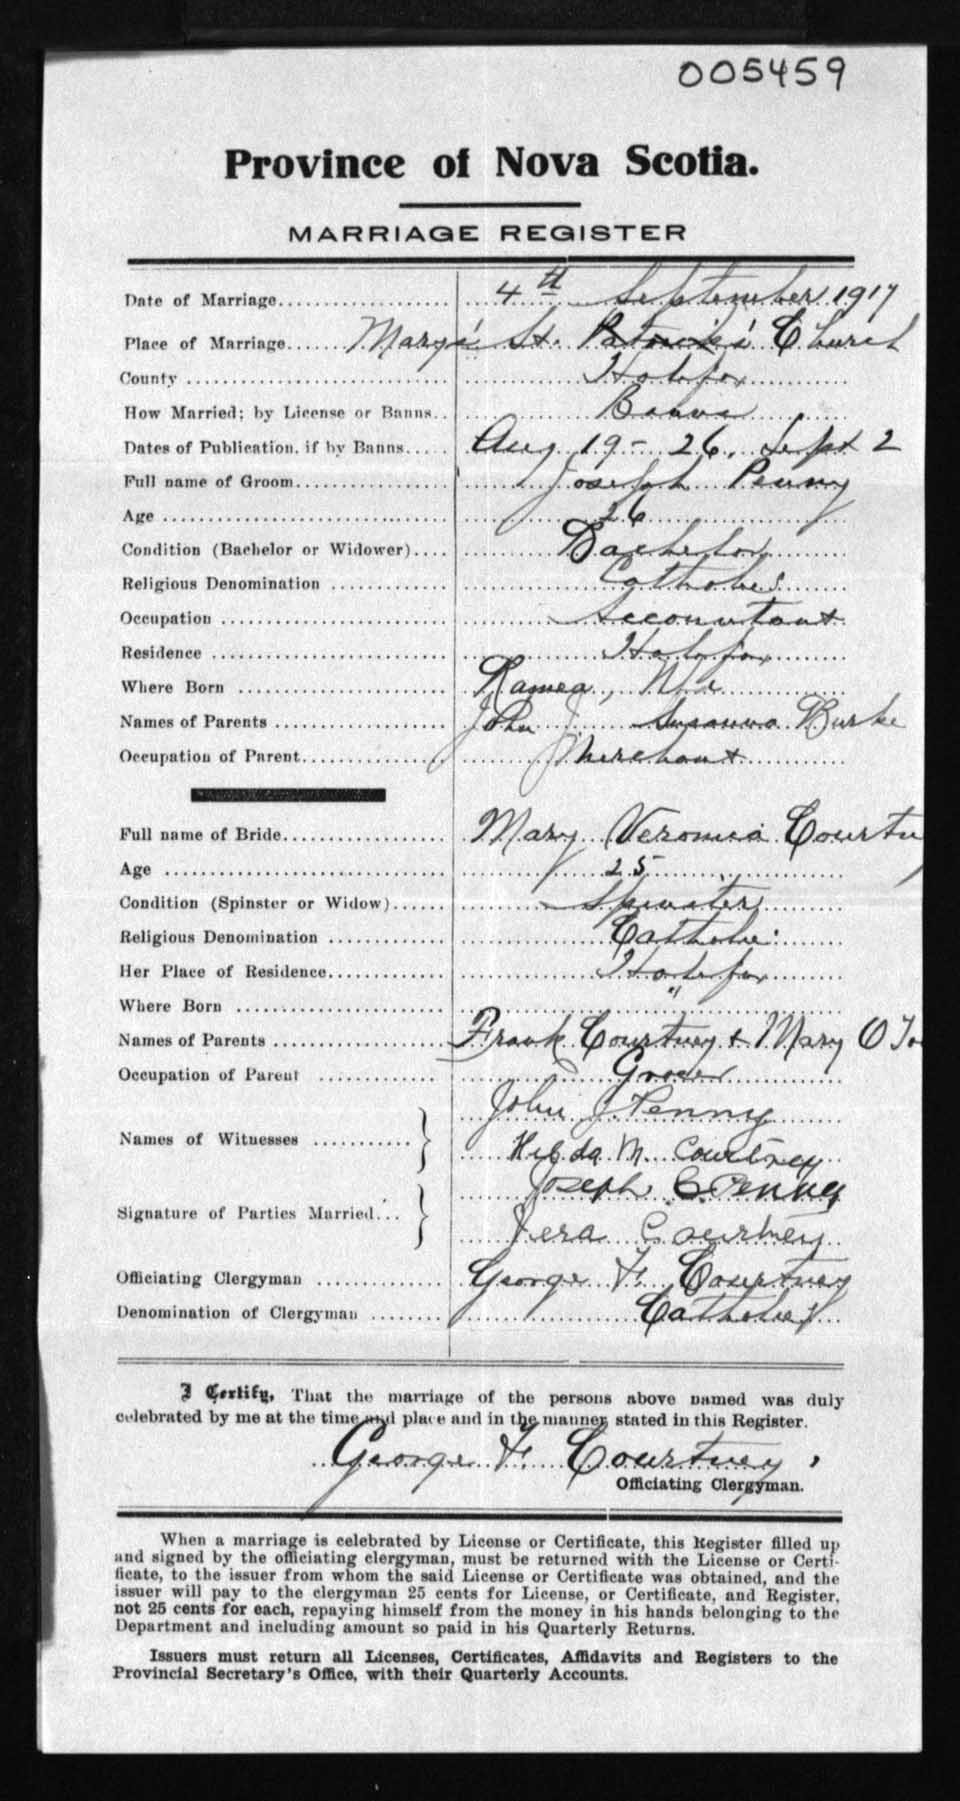 005459
Province of Nova Scotia.
MARRIAGE REGISTER
Date of Marriage 4th September 1917
Place of Marriage Mary's St. Patrick's Church
County Halifax
How Married; by License or Banns Banns
Dates of Publication, if by Banns Aug 19 - 26. Sept 2
Full name of Groom Joseph Penny
Age 26
Condition (Bachelor or Widower) Bachelor
Religious Denomination Catholic
Occupation Accountant
Residence Halifax
Where Born Ramea, Nd
Names of Parents John J. Susanna Burke
Occupation of Parent Merchant
Full name of Bride Mary Veronica Courtny
Age 25
Condition (Spinster or Widow) Spinster
Religious Denomination Catholic
Her Place of Residence Halifax
Where Born "
Names of Parents Frank Courtney & Mary O To
Occupation of Parent Grocer
John J Penny
Names of Witnesses
Hilda M. Courtney
Joseph C. Penny
Signature of Parties Married
Vera Courtney
Officiating Clergyman George F. Courtney
Denomination of Clergyman Catholic
I Certify, That the marriage of the persons above named was duly
celebrated by me at the time and place and in the manner stated in this Register.
George F. Courtney,
Officiating Clergyman.
When a marriage is celebrated by License or Certificate, this Register filled up
and signed by the officiating clergyman, must be returned with the License or Certi-
ficate, to the issuer from whom the said License or Certificate was obtained, and the
issuer will pay to the clergyman 25 cents for License, or Certificate, and Register,
not 25 cents for each, repaying himself from the money in his hands belonging to the
Department and including amount so paid in his Quarterly Returns.
Issuers must return all Licenses, Certificates, Affidavits and Registers to the
Provincial Secretary's Office, with their Quarterly Accounts.